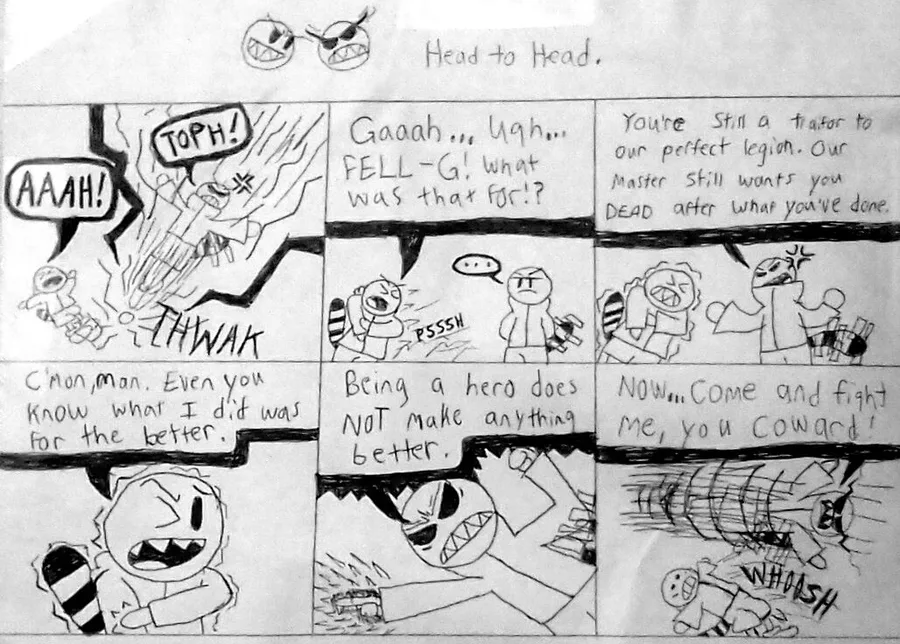 Head to Head.
AAAH!
TOPH!
THWAK
Gaaah... Ugh...
FELL-G! What
was that for!?
PSSSH
...
You're Still a traitor to
our perfect legion. Our
Master Still wants you
DEAD after what you've done.
C'mon, man. Even you
know what I did was
for the better.
Being a hero does
NOT make anything
better.
NOW... Come and fight
me, you coward!
WHOOSH